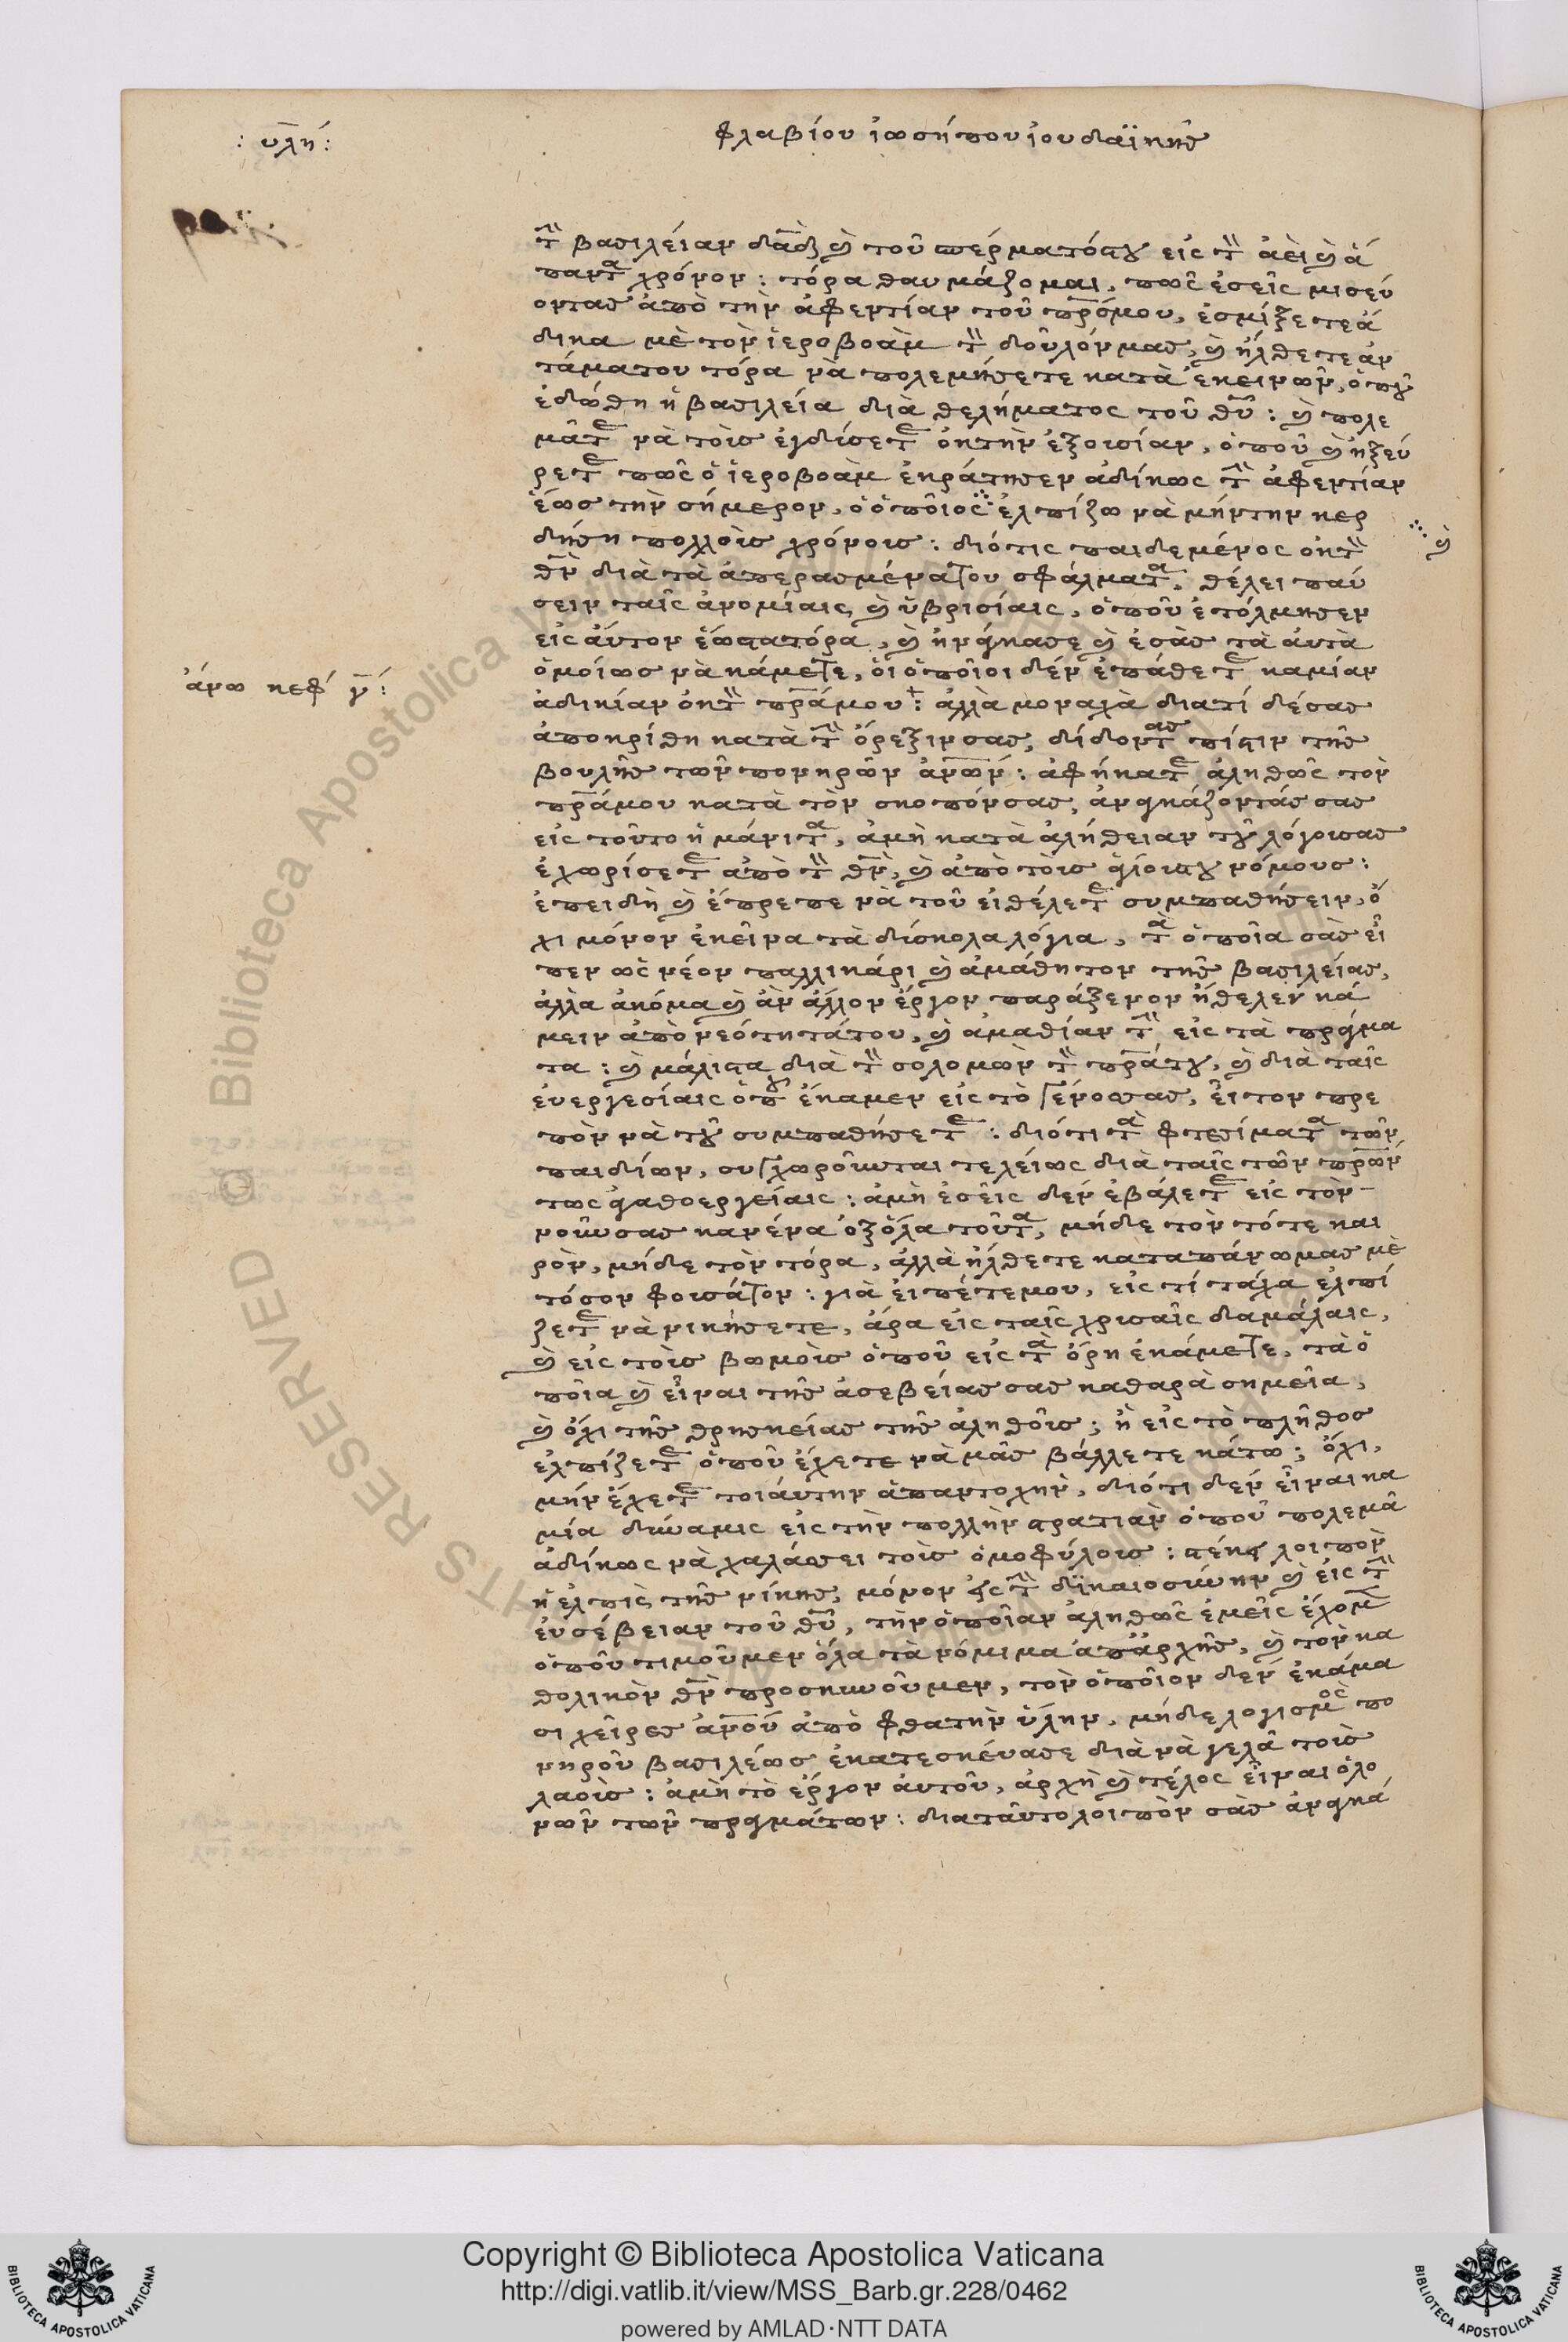 : υλη :
φλαβίου ἰωσήπου ἰουδαϊκῆς
τὴν βασιλείαν δαδ καὶ τοῦ σπέρματόςτου εἰς τὸν ἀεὶ καὶ ἅ
παντα χρόνον : τόρα θαυμάζομαι, πῶς ἐσεῖς μισεύ
οντας ἀπὸ τὴν ἀφεντίαν τοῦ πρόμου, ἐσμίξετε ἄ
δικα μὲ τὸν ἱεροβοὰμ τὸν δοῦλόνμας, καὶ ἤλθετε ἀν
τάματου τόρα νὰ πολεμήσετε κατὰ ἐκεινῶν, ὁποῦ
ἐδώθη ἡ βασιλεία διὰ θελήματος τοῦ θῦ : καὶ πολε
μᾶτε νὰ τοὺς ἐγδύσετε ἐκ τὴν ἐξουσίαν, ὁποῦ καὶ ἠξεύ
ρετε πῶς ὁ ἱεροβοὰμ ἐκράτησεν ἀδίκως τὴν ἀφεντίαν
ἕως τὴν σήμερον, ὁ ὁποῖος ἐλπίζω νὰ μήντην κερ
δήση πολλοὺς χρόνους : διότις παιδεμένος ἐκ τὸν
θν διὰ τὰ ἀπερασμένατου σφάλματα, θέλει παύ
σειν ταῖς ἀνομίαις καὶ ὑβρισίαις, ὁποῦ ἐτόλμησεν
εἰς αὐτον ἕωςτατόρα, καὶ ἠνάγκασε καὶ ἐσὰς τὰ αὐτὰ
ὁμοίως νὰ κάμετε, οἱ ὁποῖοι δὲν ἐπάθετε καμίαν
ἄνω κεφ γ :
ἀδικίαν ἐκ τὸν πράμου : ἀλλὰ μοναχὰ διατί δέσας
ἀποκρίθη κατὰ τὴν ὄρεξινσας, δίδοντας πίστιν τῆς
βουλῆς τῶν πονηρῶν ἀνῶν : ἀφήκατε ἀληθῶς τὸν
πράμου κατὰ τὸν σκοπόνσας, ἀναγκάζοντάς σας
εἰς τοῦτο ἡ μάνιτα, ἀμὴ κατὰ ἀλήθειαν τοῦ λόγουσας
ἐχωρίσετε ἀπὸ τὸν θν, καὶ ἀπὸ τοὺς ἁγίουςτου νόμους :
ἐπειδὴ καὶ ἔπρεπε νὰ τοῦ εἰθέλετε συμπαθήσειν, ὄ
χι μόνον ἐκεῖνα τὰ δύσκολα λόγια, τὰ ὁποῖα σὰς εἶ
πεν ὡς νέον παλλικάρι καὶ ἀμάθητον τῆς βασιλείας,
ἀλλὰ ἀκόμα καὶ ἂν ἄλλον ἔργον παράξενον ἤθελεν κά
μειν ἀπὸ νεότητάτου, καὶ ἀμαθίαν τὴν εἰς τὰ πράγμα
τα : καὶ μάλιστα διὰ τὸν σολομὼν τὸν πράτου, καὶ διὰ ταῖς
εὐεργεσίαις ὁποῦ ἔκαμεν εἰς τὸ γένοςσας, εἶτον πρε
πὸν νὰ τοῦ συμπαθήσετε : διότι τὰ φτεσίματα τῶν
παιδίων, συγχωροῦνται τελείως διὰ ταῖς τῶν πρῶν
τως ἀγαθοεργείαις : ἀμὴ ἐσεῖς δὲν ἐβάλετε εἰς τὸν
νοῦνσας κανένα ὀξόλα τοῦτα, μήδε τὸν τότε και
ρὸν, μήδε τὸν τόρα, ἀλλὰ ἤλθετε καταπάνωμας μὲ
τόσον φουσάτον : γιὰ εἰπέτεμου, εἰς τί τάχα ἐλπί
ζετε νὰ νικήσετε, ἄρα εἰς ταῖς χρυσαῖς δαμάλαις,
καὶ εἰς τοὺς βωμοὺς ὁποῦ εἰς τὰ ὄρη ἐκάμετε, τὰ ὁ
ποῖα καὶ εἶναι τῆς ἀσεβείας σας καθαρὰ σημεῖα,
καὶ ὄχι τῆς θρησκείας τῆς ἀληθοῦς ; ἢ εἰς τὸ πλῆθος
ἐλπίζετε ὁποῦ ἔχετε νὰ μᾶς βάλλετε κάτω ; ὄχι,
μὴν ἔχετε τοιάυτην ἀπαντοχὴν, διότι δὲν εἶναι κα
μία δύναμις εἰς τὴν πολλὴν στρατιὰν ὁποῦ πολεμᾶ
ἀδίκως νὰ χαλάσει τοὺς ὁμοφύλους : στέκει λοιπὸν
ἡ ἐλπὶς τῆς νίκης, μόνον εἰς τὴν δικαιοσύνην καὶ εἰς τὴν
εὐσέβειαν τοῦ θῦ, τὴν ὁποῖαν ἀληθῶς ἐμεῖς ἔχομεν
ὁποῦ τιμοῦμεν ὅλα τὰ νόμιμα ἀπἀρχῆς, καὶ τὸν κα
θολικὸν θν προσκυνοῦμεν, τὸν ὁποῖον δὲν ἐκάμα
σι χεῖρες ἀνοῦ ἀπὸ φθατὴν ὕλην, μήδε λογισμὸς πο
νηροῦ βασιλέως ἐκατεσκέυασε διὰ νὰ γελᾶ τοὺς
λαοὺς : ἀμὴ τὸ ἔργον ἀυτοῦ, ἀρχὴ καὶ τέλος εἶναι ὁλο
νῶν τῶν πραγμάτων : διαταῦτο λοιπὸν σὰς ἀναγκά
καὶ
Copyright © Biblioteca Apostolica Vaticana
http://digi.vatlib.it/view/MSS_Barb.gr.228/0462
powered by AMLAD·NTT DATA
BIBLIOTECA APOSTOLICA VATICANA
BIBLIOTECA APOSTOLICA VATICANA